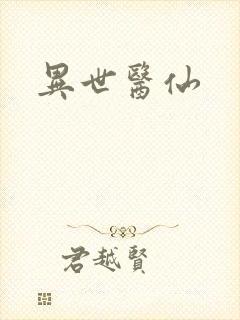 異世醫仙
君越賢